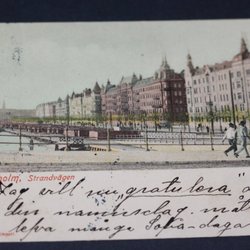 holm, Strandvägen
Jag vill nu "gratulera"
din namnsdag måt
leva många Sofia-dagar